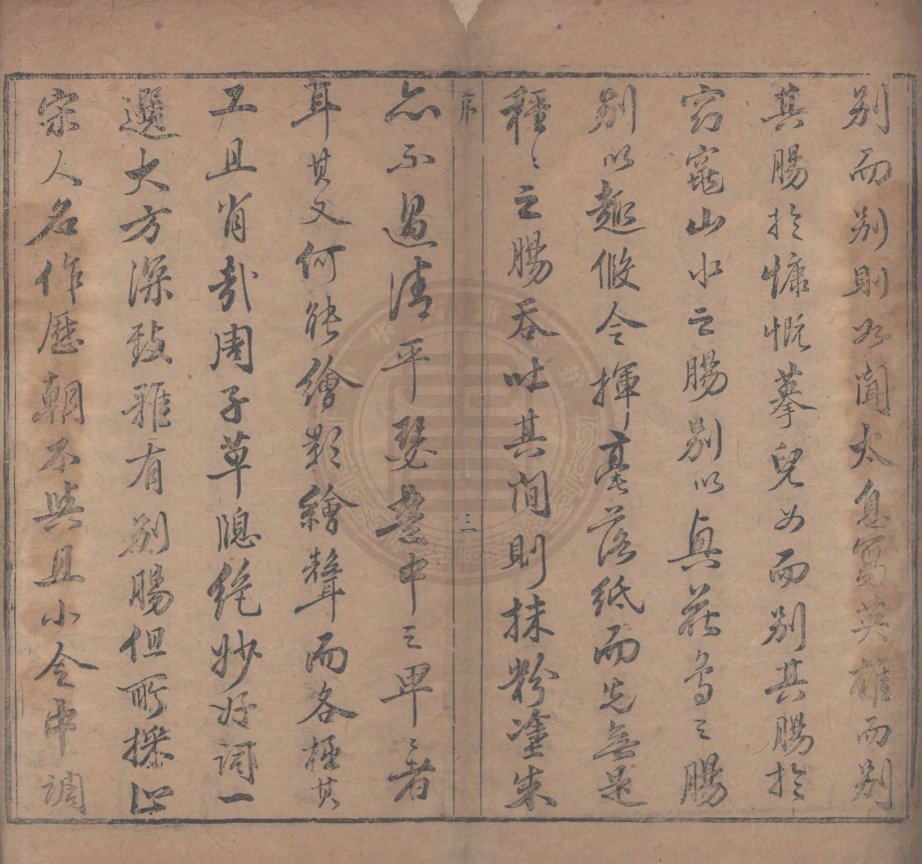 別而別則如聞太息寫英雄而別
其腸於慷慨摹兒女而別其腸於
窈窕山水之腸別以真花鳥之腸
別以趣假令揮毫落紙而先無是
種〻之腸吞吐其間則抹粉塗朱
序
三
亦不過清平瑟巷中之卑〻者
耳其又何能繪影繪聲而各極其
工且肖哉周子草憁絶妙好詞一
選大方深致雅有別腸但所採止
宋人名作歷朝不與且小令中調